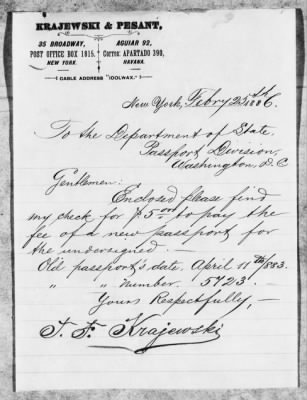 KRAJEWSKI & PESANT,
35 BROADWAY, AGUIAR 92,
POST OFFICE BOX 1815. Correo: APARTADO 390,
NEW YORK. HAVANA.
CABLE ADDRESS "IDOLWAX."
New York, Febry 25th 1886.
To the Department of State,
Passport Division,
Washington, D.C
Gentlemen:
Enclosed please find
my check for $5.00 to pay the
fee of a new passport for
the undersigned.
Old passport's date, April 11th/883.
" " number. 5723.
Yours Respectfully,
T. F. Krajewski